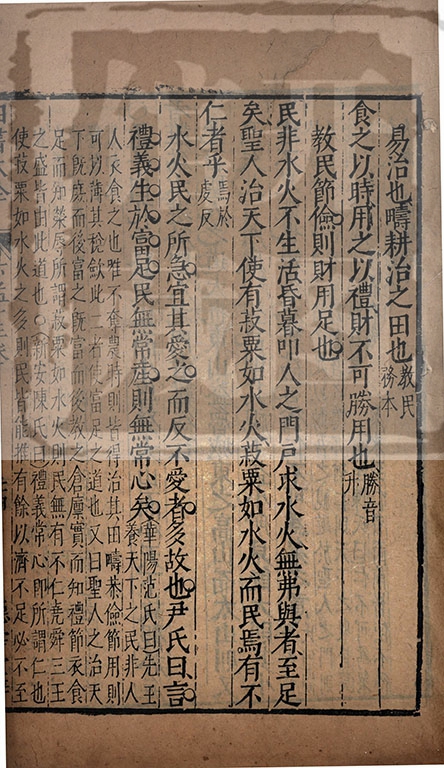 易治也疇耕治之田也教民
務本
食之以時用之以禮財不可勝用也勝音
升
教民節儉則財用足也
民非水火不生活昏暮叩人之門戶求水火無弗與者至足
矣聖人治天下使有菽粟如水火菽粟如水火而民焉有不
仁者乎焉於
虔反
水火民之所急宜其愛之而反不愛者多故也尹氏曰言
禮義生於富足民無常產則無常心矣華陽范氏曰先王
養天下之民非人
人衣食之也唯不奪農時則皆得治其田疇恭儉節用則
可以薄其稅斂此二者使富足之道也又曰聖人之治天
下旣庶而後富之旣富而後教之倉廩實而知禮節衣食
足而知榮辱所謂菽粟如水火則民無有不仁堯舜三王
之盛皆由此道也○新安陳氏曰禮義常心即所謂仁也
使菽粟如水火之多則民皆能推有餘以濟不足必不至